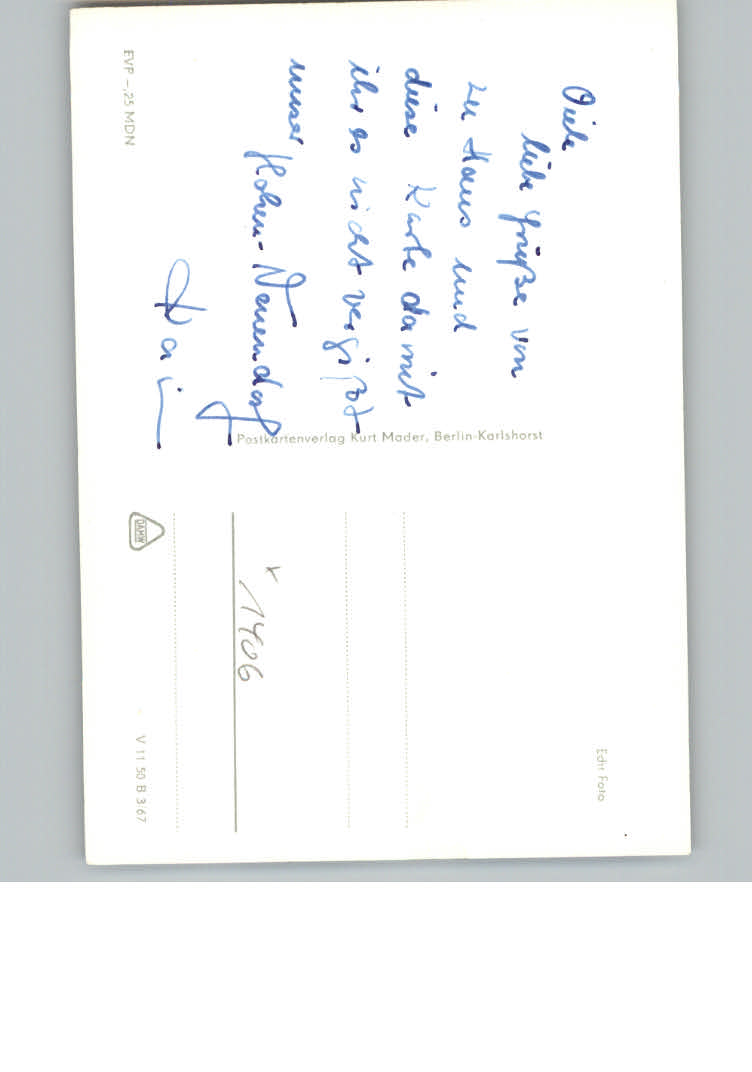 Viele
liebe Grüße von
zu Haus und
diese Karte damit
ihr es nicht vergißt
unser
Hohen-Neuendorf
EVP –,25 MDN
Postkartenverlag Kurt Mader, Berlin-Karlshorst
DAMW
1406
V 11 50 B 3/67
Echt Foto